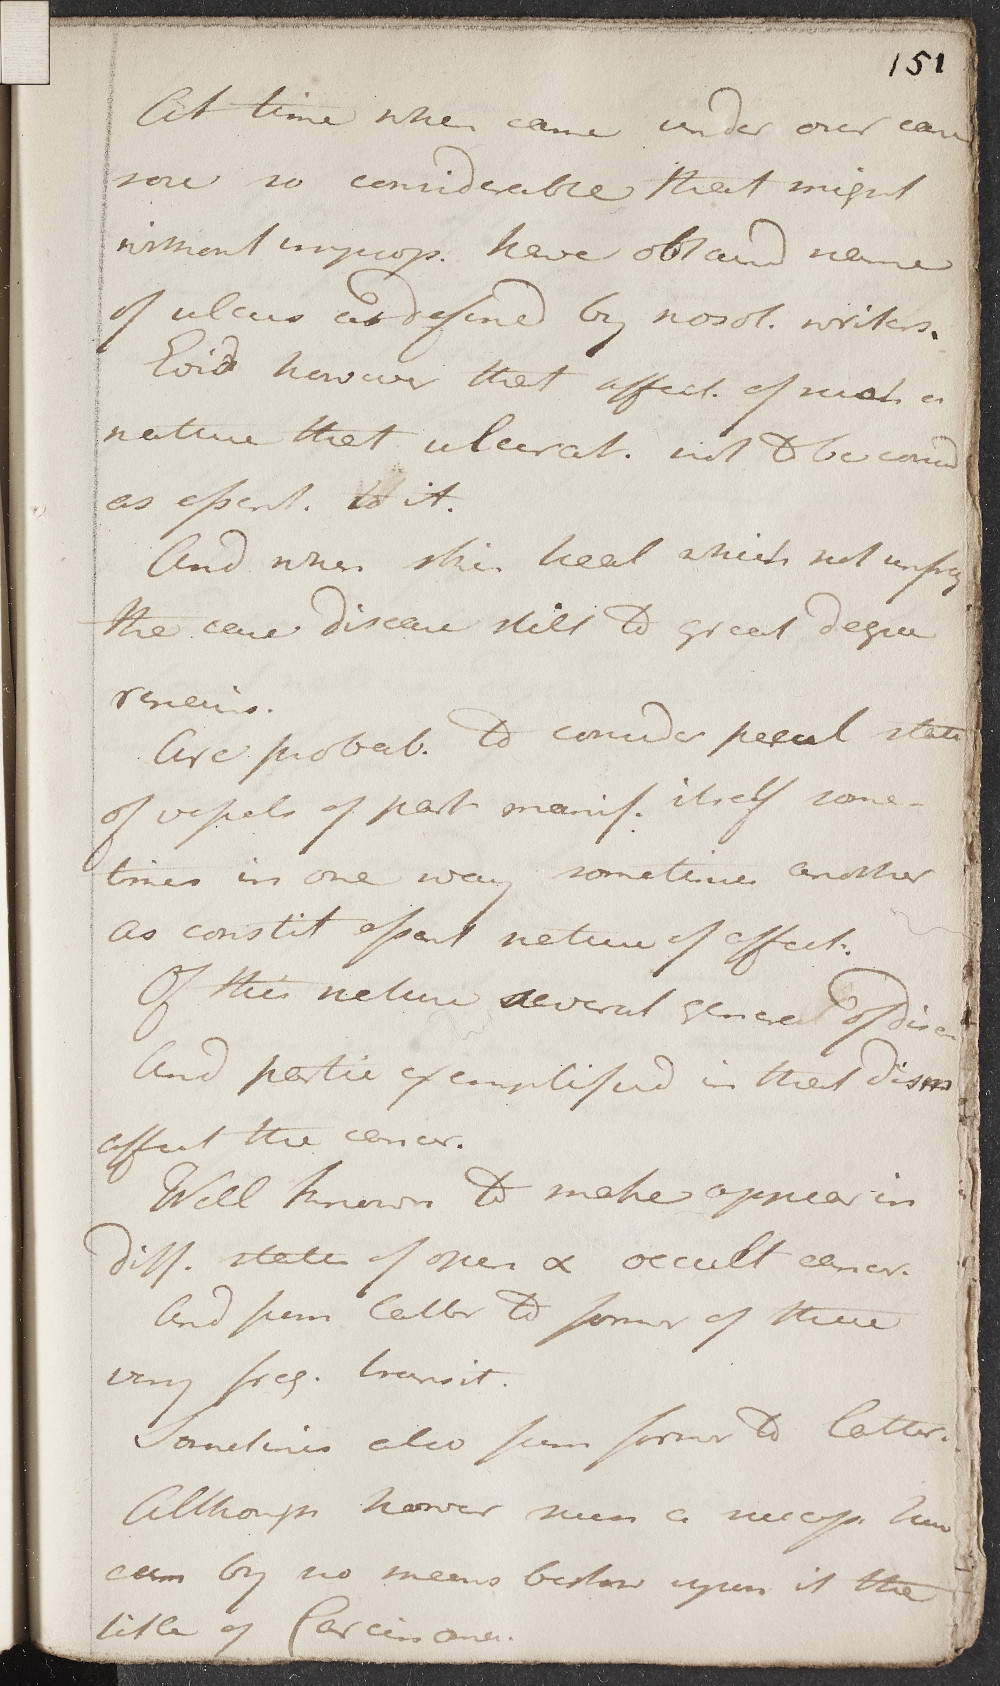 151
At time when came under our care
sore so considerable that might
without improp. have obtaind name
of ulcus as defined by nosol. writers.
Evid however that affect. of such a
nature that ulcerat. not to be consid
as essent. to it.
And when skin heal which not unfreq
the case disease still to great degree
remains.
Are probab. to consider pecul state
of vessels of part manif. itself some-
times in one way sometimes another
as constit essent nature of affect.
Of this nature several genera of disea
And partic exemplified in that
affect the cancer.
Well known to make appear in
diff. state of open & occult cancer.
And from latter to former of these
very freq. transit.
Sometimes also from former to latter.
Although however
can by no means bestow upon it the
title of Carcinoma.